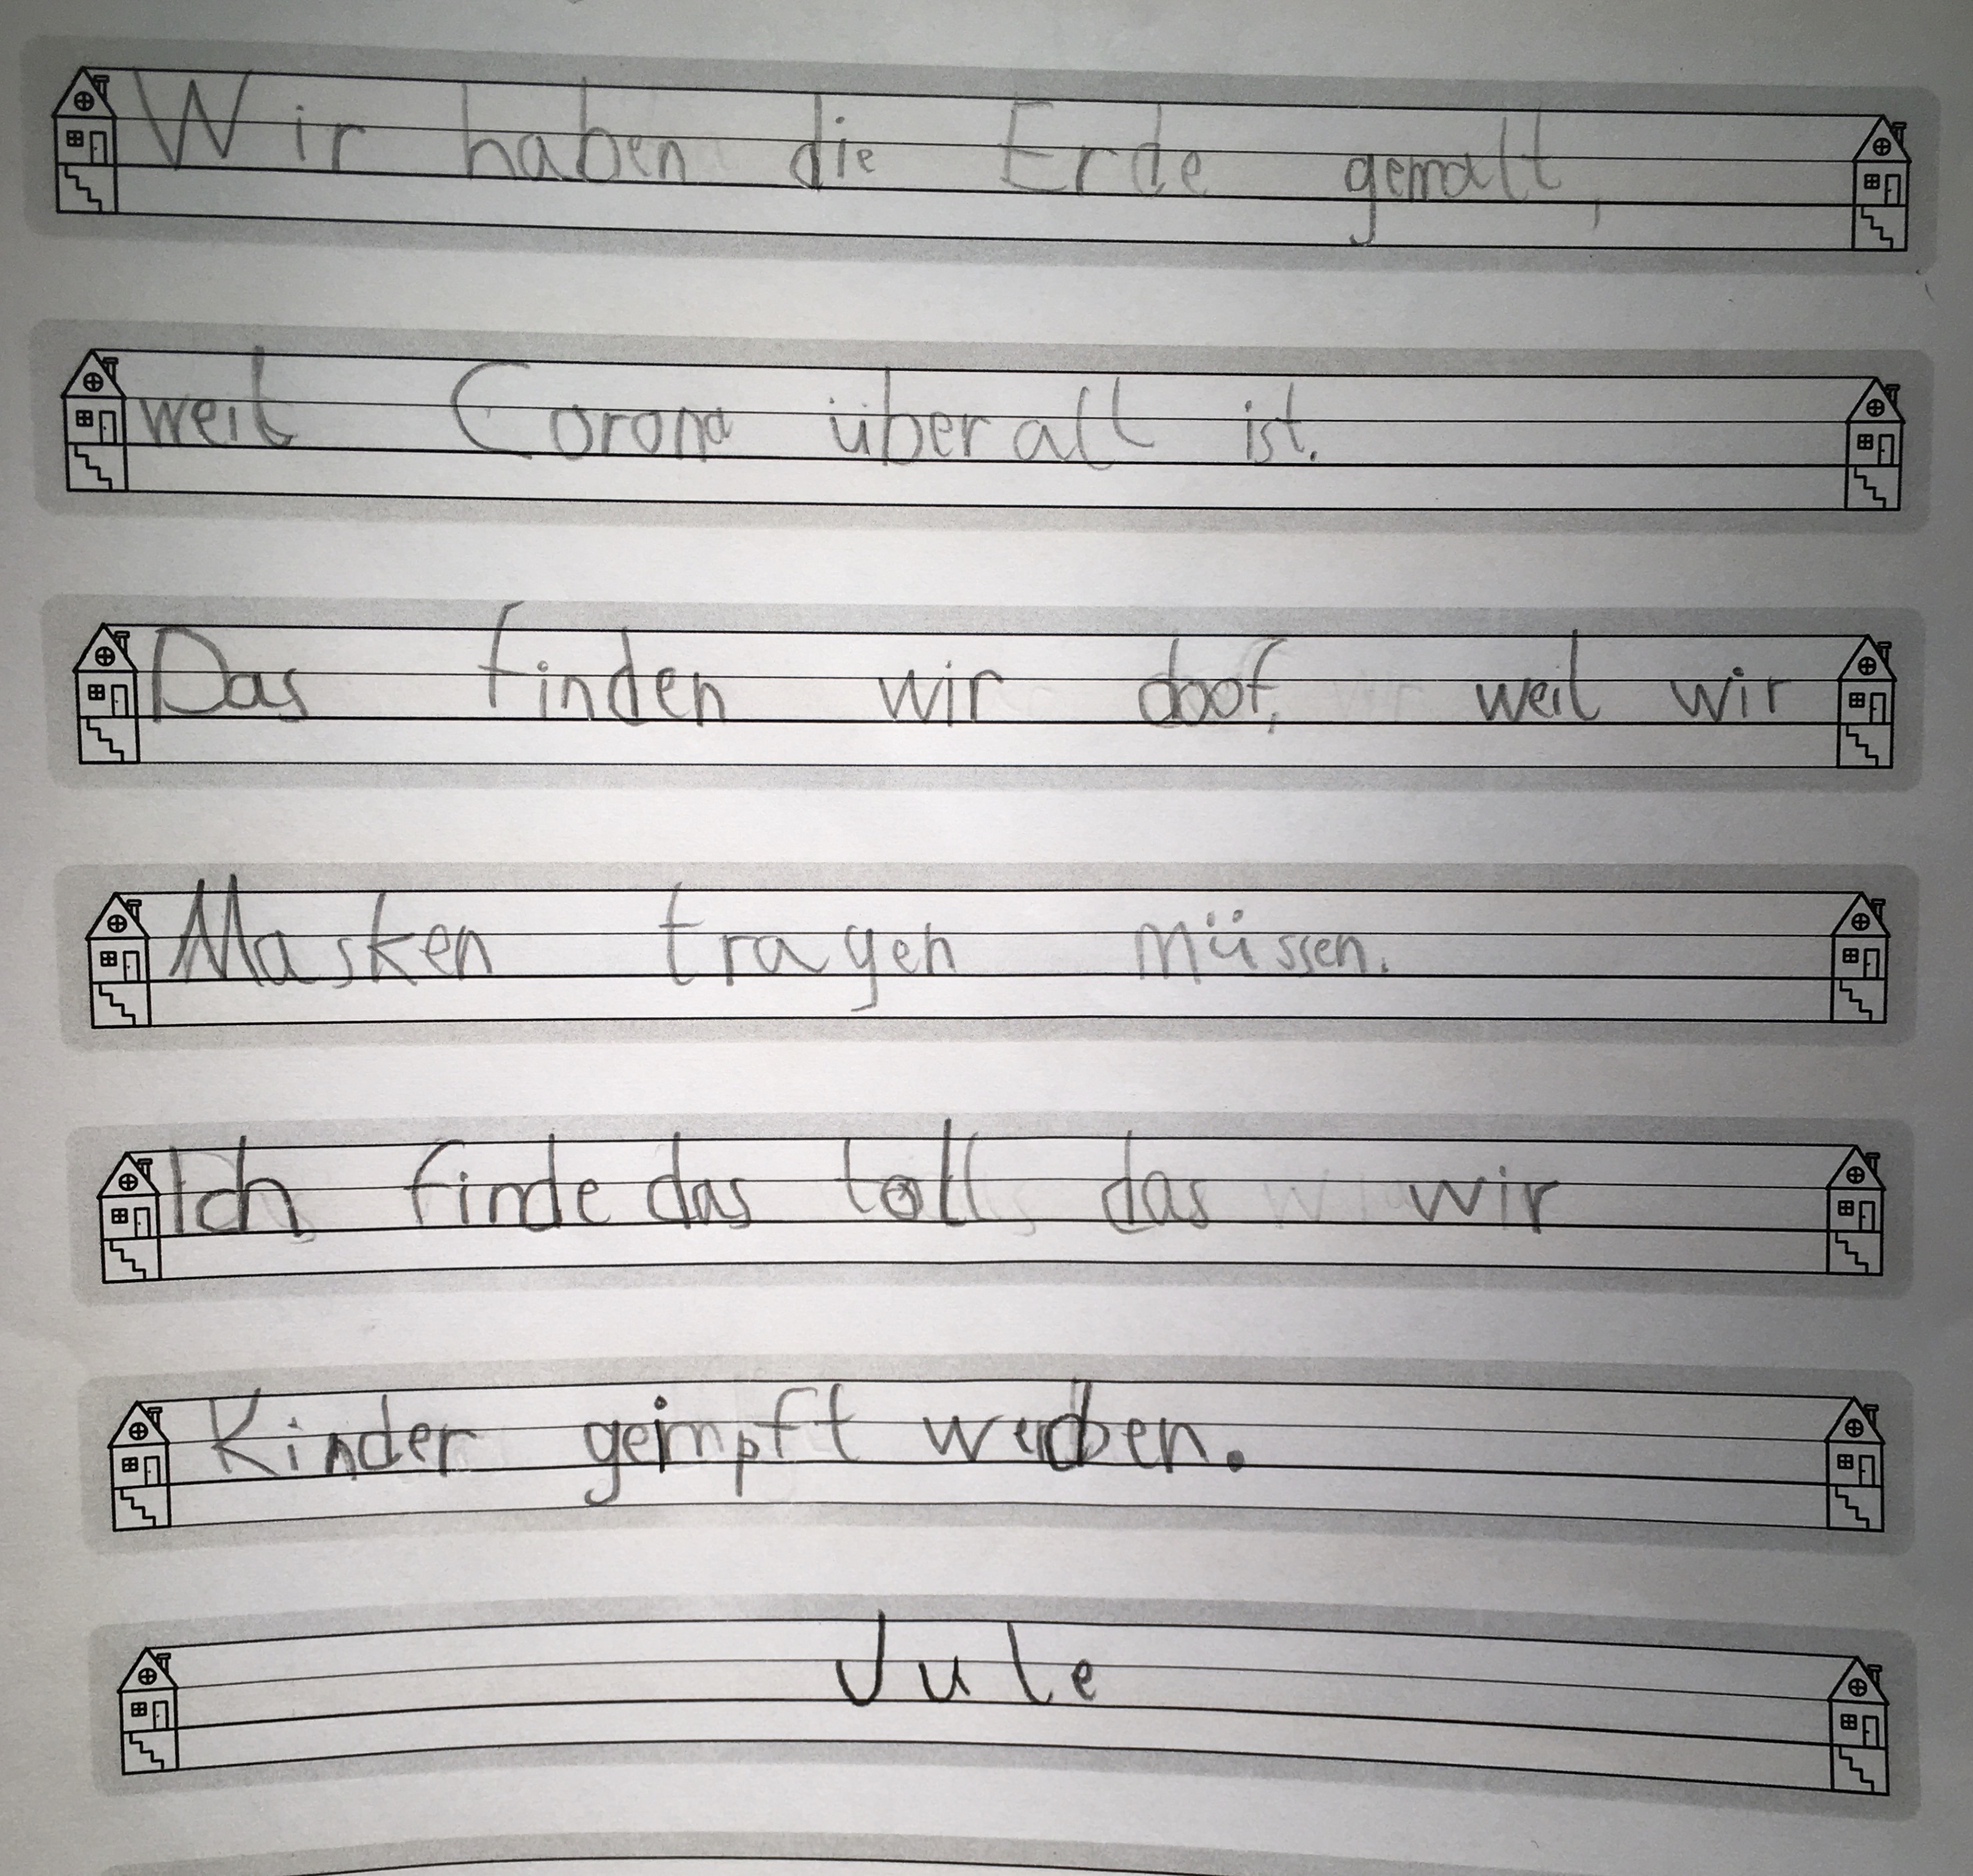 Wir haben die Erde gemalt,
weil Corona überall ist.
Das finden wir doof, weil wir
Masken tragen müssen.
Ich finde das toll das wir
Kinder geimpft werden.
Jule